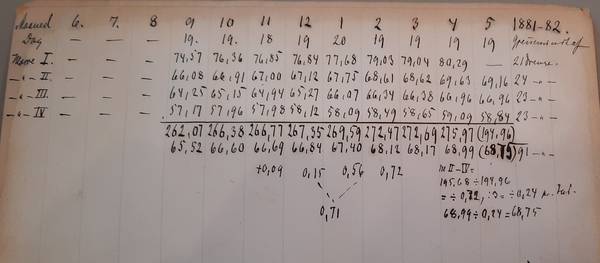 Maaned 6. 7. 8 9 10 11 12 1 2 3 4 5 1881-82.
Dag — — — 19. 19. 18 19 20 19 19 19 19
I. — — — 74,57 76,36 76,85 76,84 77,68 79,03 79,04 80,29 — 21 drenge.
-"- II — — — 66,08 66,91 67,00 67,12 67,75 68,61 68,62 69,63 69,16 24 -"-
-"- III. — — — 64,25 65,15 64,94 65,27 66,07 66,34 66,38 66,96 66,96 23 -"-
-"- IV — — — 57,17 57,96 57,98 58,12 58,09 58,49 58,65 59,09 58,84 23 -"-
262,07 266,38 266,77 267,35 269,59 272,47 272,69 275,97 (194,96)
65,52 66,60 66,69 66,84 67,40 68,12 68,17 68,99 (68,75) 91 -"-
+0,09 0,15 0,56 0,72 II-IV=
195,68 ÷ 194,96
0,71 = ÷ 0,72, :3 = ÷ 0,24
68,99 ÷ 0,24 = 68,75